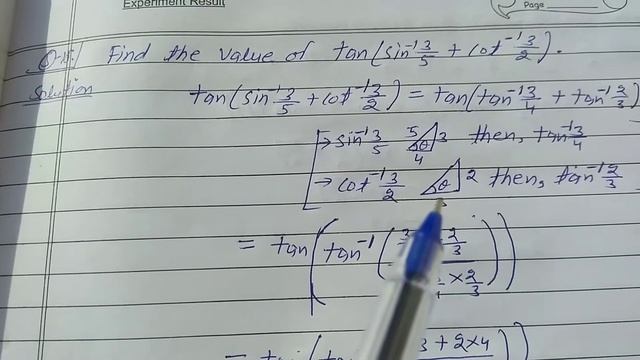 Experiment Result
Page
Q.15. Find the value of tan(sin⁻¹ 3/5 + cot⁻¹ 3/2).
Solution tan(sin⁻¹ 3/5 + cot⁻¹ 3/2) = tan(tan⁻¹ 3/4 + tan⁻¹ 2/3)
→ sin⁻¹ 3/5 5 θ 3 4 then, tan⁻¹ 3/4
→ cot⁻¹ 3/2 θ 2 then, tan⁻¹ 2/3
= tan(tan⁻¹(3 2/3 × 2/3))
= 3 + 2×4